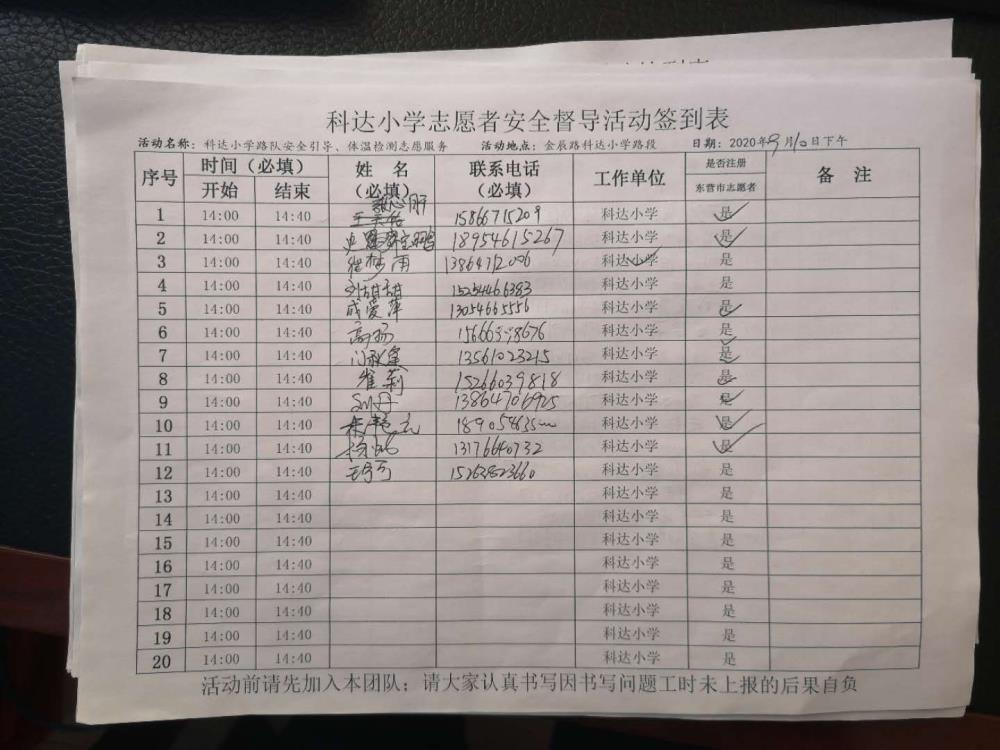 科达小学志愿者安全督导活动签到表
活动名称：科达小学路队安全引导、体温检测志愿服务 活动地点：金辰路科达小学路段 日期：2020年9月10日下午
序号 时间（必填） 姓 名（必填） 联系电话（必填） 工作单位 是否注册 备 注
开始 结束 东营市志愿者
1 14:00 14:40 15866715209 科达小学 是
2 14:00 14:40 18954615267 科达小学 是
3 14:00 14:40 科达小学 是
4 14:00 14:40 刘甜甜 15254466383 科达小学 是
5 14:00 14:40 成爱萍 13054665556 科达小学 是
6 14:00 14:40 高扬 科达小学 是
7 14:00 14:40 13561023215 科达小学 是
8 14:00 14:40 崔莉 15266039818 科达小学 是
9 14:00 14:40 刘丹 13864706925 科达小学 是
10 14:00 14:40 科达小学 是
11 14:00 14:40 13176640732 科达小学 是
12 14:00 14:40 科达小学 是
13 14:00 14:40 科达小学 是
14 14:00 14:40 科达小学 是
15 14:00 14:40 科达小学 是
16 14:00 14:40 科达小学 是
17 14:00 14:40 科达小学 是
18 14:00 14:40 科达小学 是
19 14:00 14:40 科达小学 是
20 14:00 14:40 科达小学 是
活动前请先加入本团队；请大家认真书写因书写问题工时未上报的后果自负